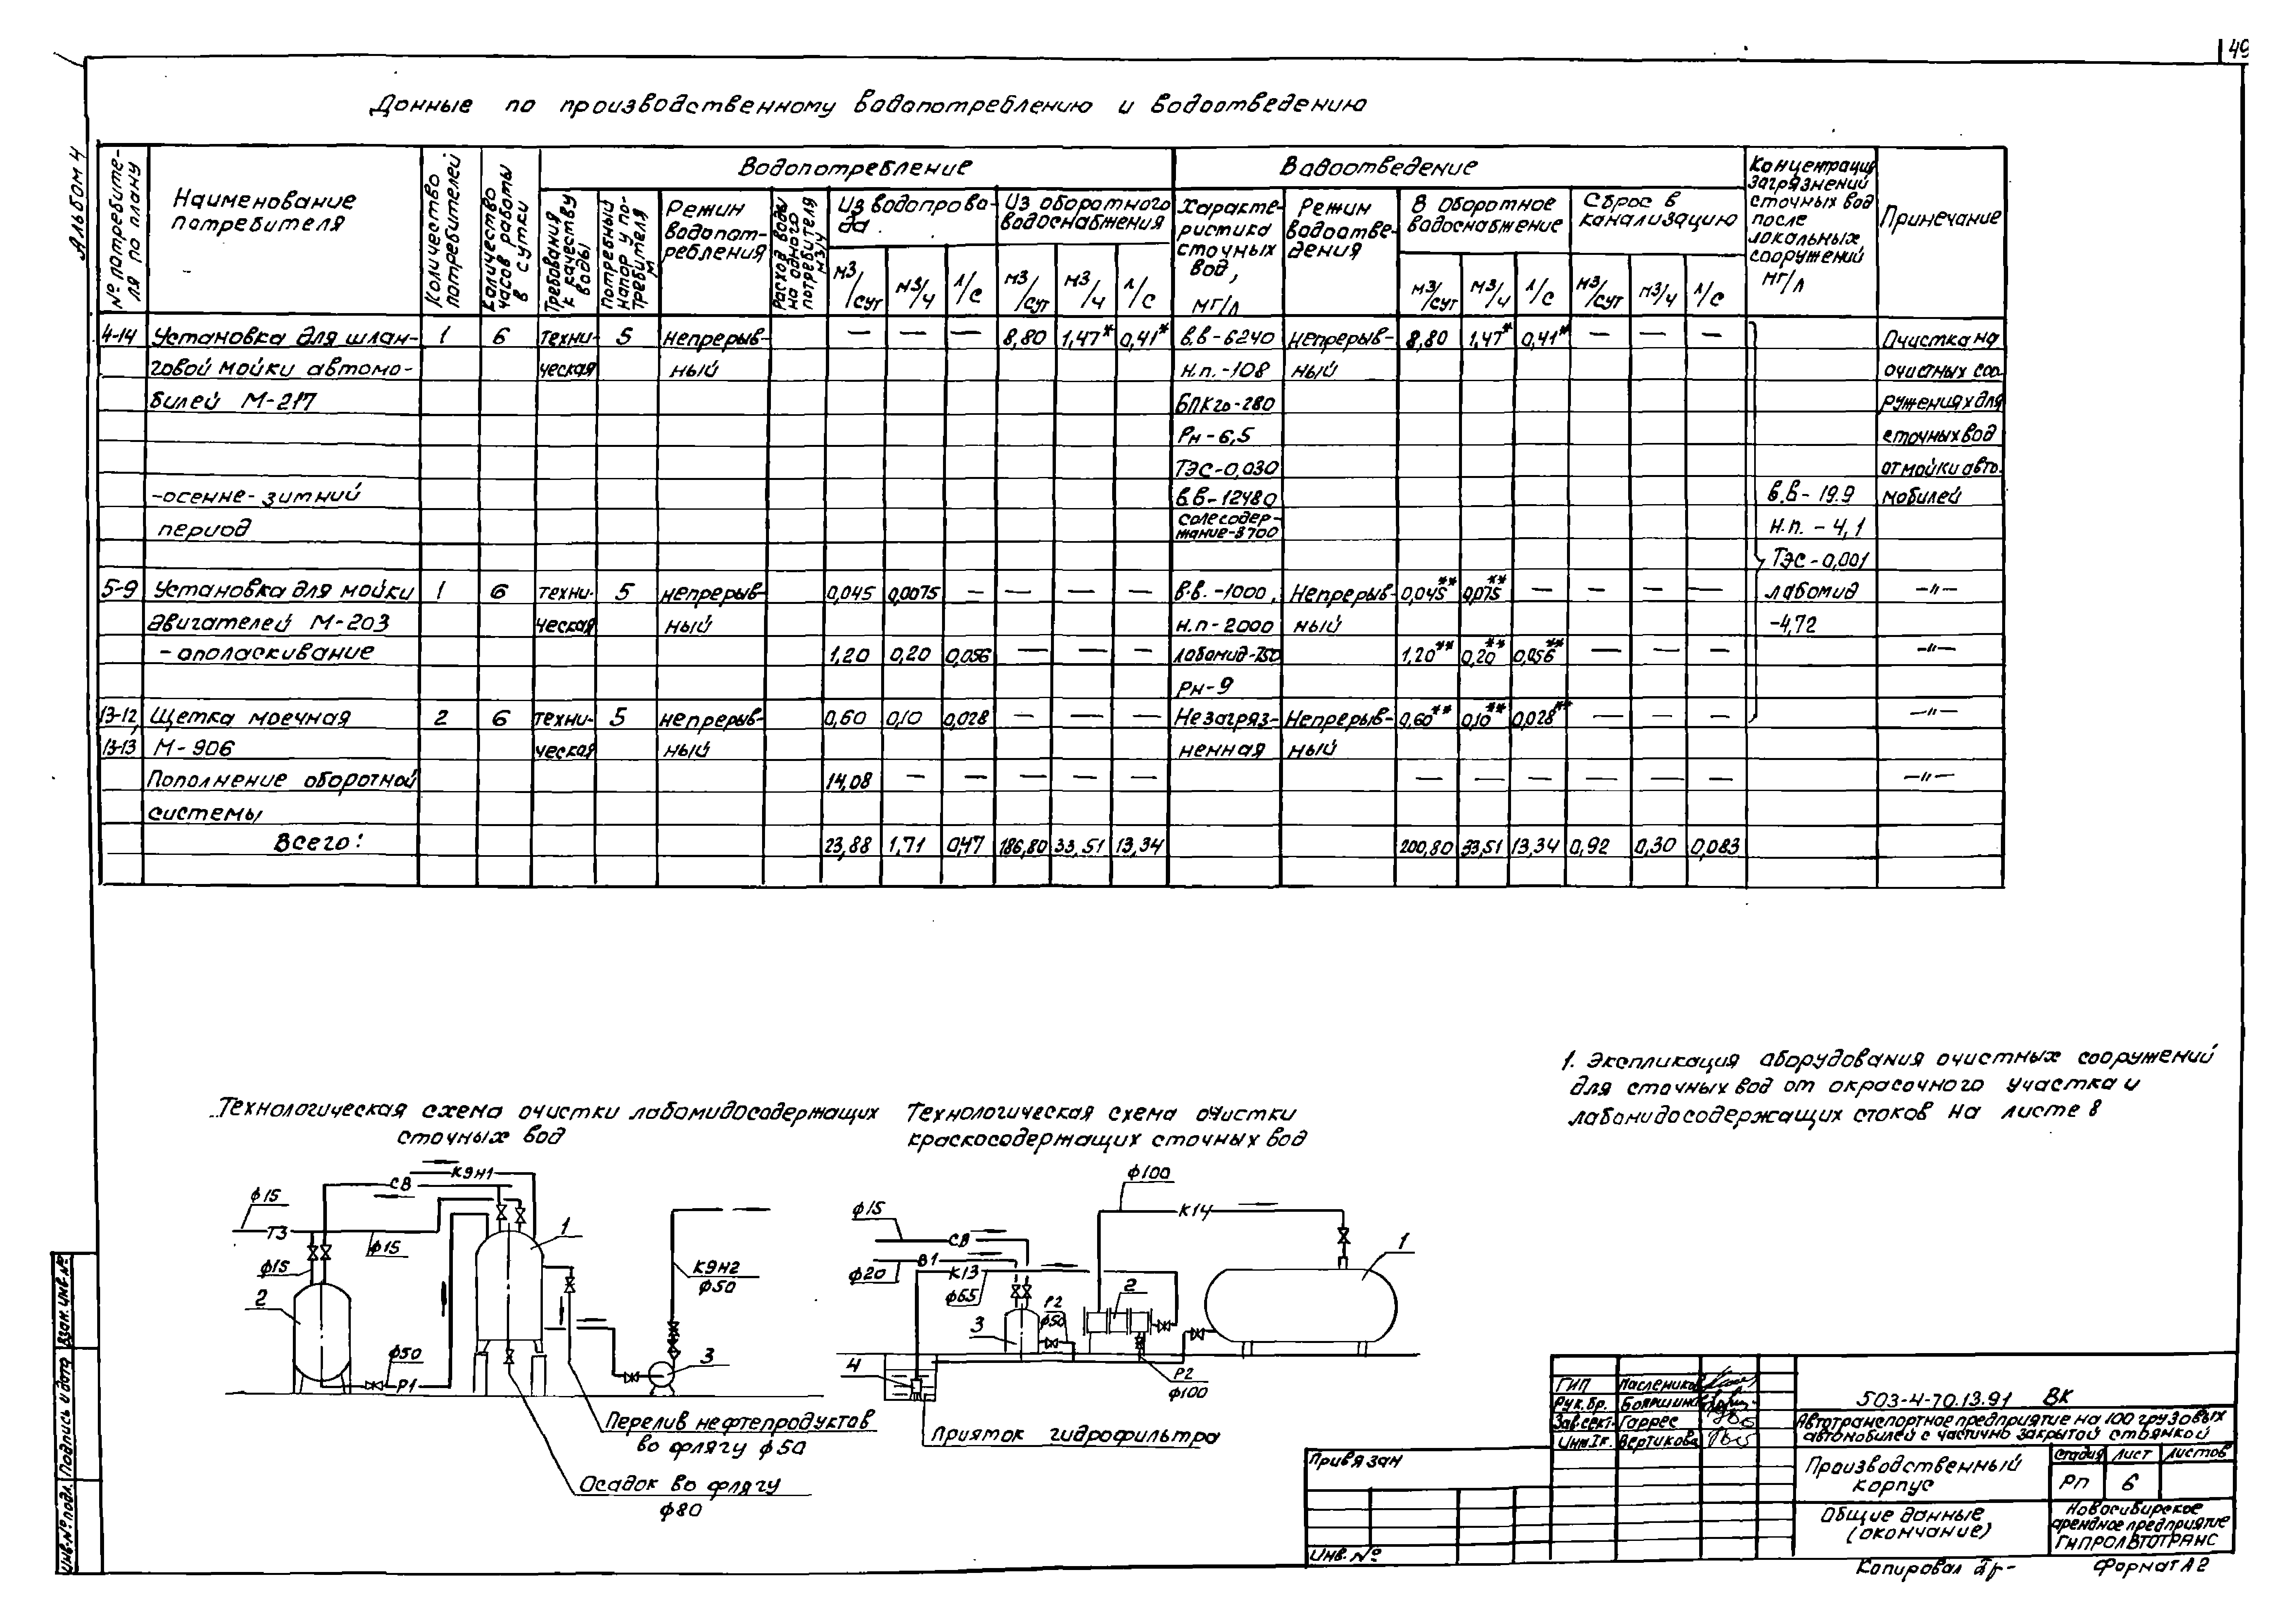 49
Данные по производственному водопотреблению и водоотведению
Альбом 4
№ потребителя по плану
Наименование потребителя
Количество потребителей
Количество часов работы в сутки
Водопотребление
Требования к качеству воды
Потребный напор у потребителя м
Режим водопотребления
Расход воды на одного потребителя м3/ч
Из водопровода
Из оборотного водоснабжения
м3/сут м3/ч л/с м3/сут м3/ч л/с
Водоотведение
Характеристика сточных вод, мг/л
Режим водоотведения
В оборотное водоснабжение
Сброс в канализацию
м3/сут м3/ч л/с м3/сут м3/ч л/с
Концентрация загрязнений сточных вод после локальных сооружений мг/л
Примечание
4-14 Установка для шлан- 1 6 техни- 5 непрерыв- — — — 8,80 1,47* 0,41* в.в-6240 непрерыв- 8,80 1,47* 0,41* — — — Очистка на
говой мойки автомо- ческая ный н.п.-108 ный очистных соо-
билей М-217 БПК20-280 ружениях для
Рн-6,5 сточных вод
ТЭС-0,030 от мойки авто-
-осенне-зимний в.в-12480 в.в-19.9 мобилей
период солесодер- н.п.-4,1
жание-3700
ТЭС-0,001
5-9 Установка для мойки 1 6 техни- 5 непрерыв- 0,045 0,0075 — — — — в.в.-1000, Непрерыв- 0,045** 0,075** — — — — лабомид —"—
двигателей М-203 ческая ный н.п-2000 ный -4,72
- ополаскивание 1,20 0,20 0,056 — — — лабомид-750 1,20** 0,20** 0,056** — — — —"—
Рн-9
13-12, Щетка моечная 2 6 техни- 5 непрерыв- 0,60 0,10 0,028 — — — Незагряз- Непрерыв- 0,60** 0,10** 0,028** — — — —"—
13-13 М-906 ческая ный ненная ный
Пополнение оборотной 14,08 — — — — — — — — — — — —"—
системы
Всего: 23,88 1,71 0,47 186,80 33,51 13,34 200,80 33,51 13,34 0,92 0,30 0,083
1. Экспликация оборудования очистных сооружений
для сточных вод от окрасочного участка и
лабомидосодержащих стоков на листе 8
Технологическая схема очистки лабомидосодержащих
сточных вод
К9Н1
СВ
ф15
Т3
ф15
ф15
1
2
К9Н2
ф50
ф50
Р1
3
Перелив нефтепродуктов
во флягу ф50
Осадок во флягу
ф80
Технологическая схема очистки
краскосодержащих сточных вод
ф100
К14
ф15
СВ
В1
ф20
К13
ф65
Р2
ф50
1
2
3
4
Р2
ф100
Приямок гидрофильтра
Привязан
Инв. №
ГИП Маслеников
Рук.бр. Бояршина
Зав.сект. Гаррес
Инж.Iк. Вертикова
503-4-70.13.91 ВК
Автотранспортное предприятие на 100 грузовых
автомобилей с частично закрытой стоянкой
Производственный
корпус
стадия лист листов
РП 6
Общие данные
(окончание)
Новосибирское
арендное предприятие
ГИПРОАВТОТРАНС
Копировал
Формат А2
Инв.№ подл. Подпись и дата Взам. инв. №